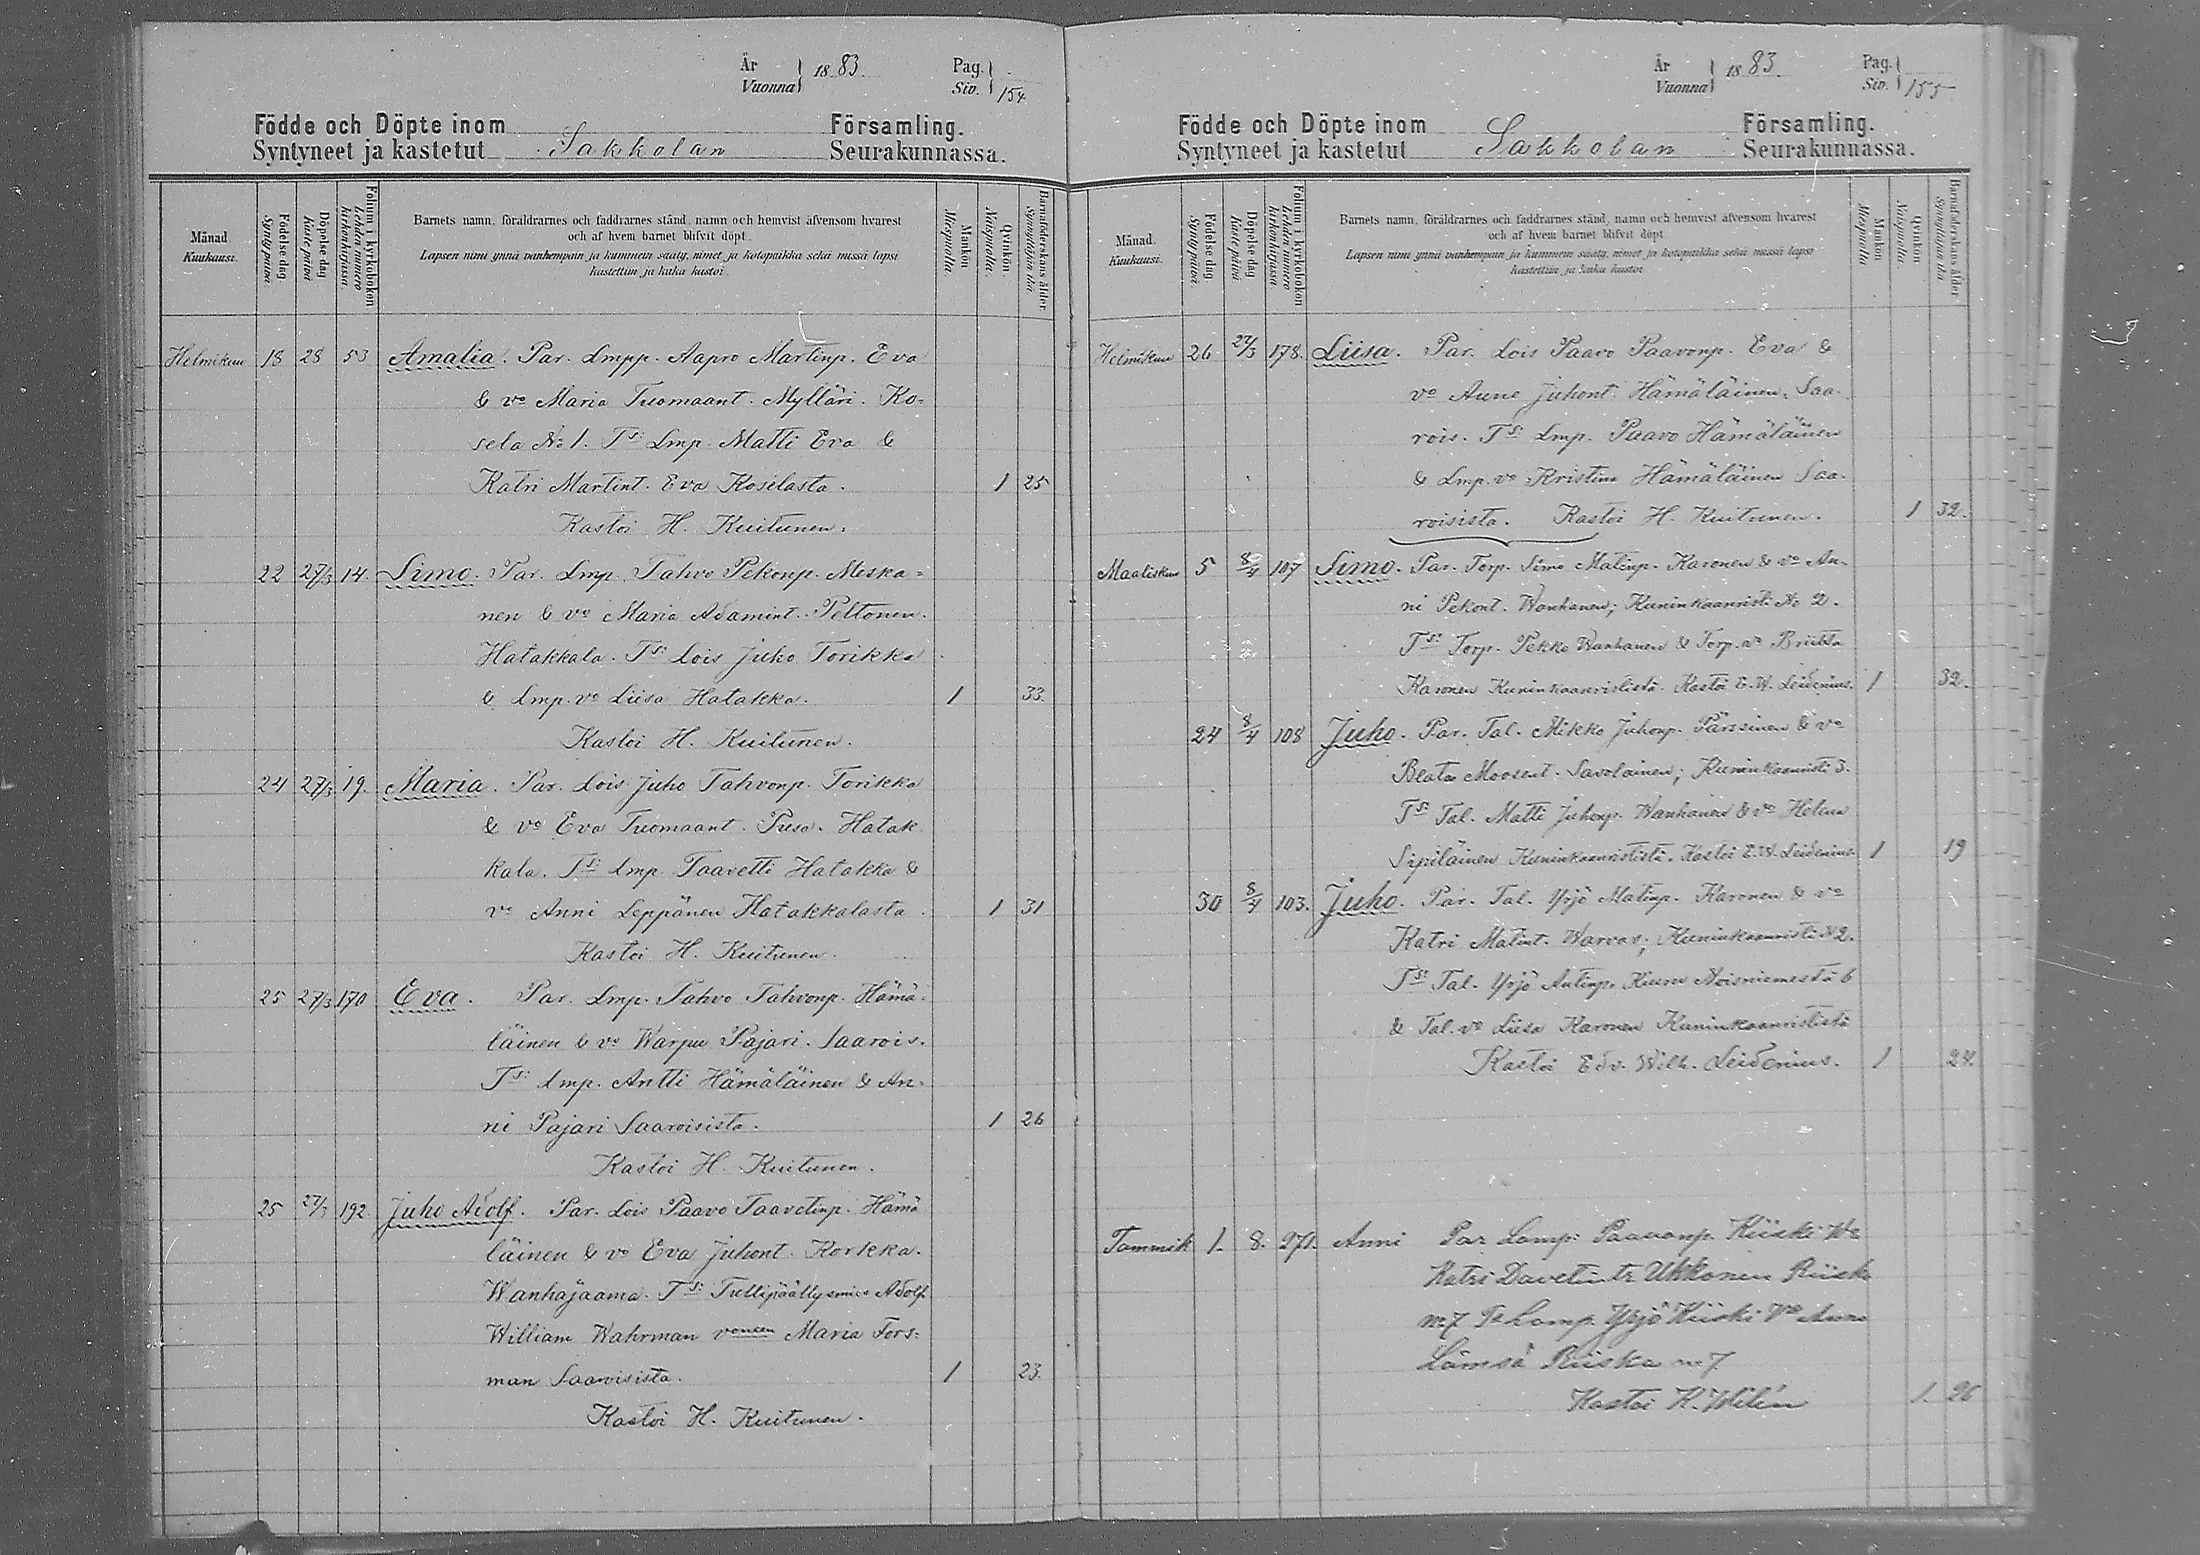 År
Vuonna 1883.
Pag.
Siv. 154
Födde och Döpte inom Församling.
Syntyneet ja kastetut Sakkolan Seurakunnassa.
Månad. Kuukausi.
Födelse dag. Syntypäivä.
Döpelse dag Kastepäivä
Folium i kyrkobokon Lehden numero kirkonkirjassa.
Barnets namn, föräldrarnes och faddrarnes stånd, namn och hemvist äfvensom hvarest
och af hvem barnet blifvit döpt.
Lapsen nimi ynnä vanhempain ja kummein sääty, nimet ja kotopaikka sekä missä lapsi
kastettiin ja kuka kastoi.
Mankön Miespuolia.
Qvinkön. Naispuolia.
Barnaföderskans ålder. Synnyttäjän ikä
Helmikuu 18 28 53 Amalia. Par. Lmpp. Aapro Martinp. Eva
& vo Maria Tuomaant. Mylläri. Ko-
sela No 1. Ts: Lmp. Matti Eva &
Katri Martint. Eva Koselasta. 1 25
Kastoi H. Kuitunen.
22 27/3 14. Simo. Par. Lmp. Tahvo Pekonp. Meska-
nen & vo Maria Adamint. Peltonen.
Hatakkala. Ts: Lois Juho Torikka
& Lmp. vo Liisa Hatakka. 1 33.
Kastoi H. Kuitunen.
24 27/3 19. Maria. Par. Lois Juho Tahvonp. Torikka
& vo Eva Tuomaant. Pusa. Hatak
kala. Ts: Lmp. Taavetti Hatakka &
vo Anni Leppänen Hatakkalasta. 1 31
Kastoi H. Kuitunen.
25 27/3 170 Eva. Par. Lmp. Tahvo Tahvonp. Hämä-
läinen & vo Warpu Pajari. Saarois.
Ts: Lmp. Antti Hämäläinen & An-
ni Pajari Saaroisista. 1 26
Kastoi H. Kuitunen.
25 27/3 192 Juho Adolf. Par. Lois Paavo Taavetinp. Hämä
läinen & vo Eva Juhont. Korkka.
Wanhajaama. Ts: Tullipäällysmies Adolf
William Wahrman voneen Maria Fors-
man Saaroisista. 1 23.
Kastoi H. Kuitunen.
År
Vuonna 1883.
Pag.
Siv. 155
Födde och Döpte inom Församling.
Syntyneet ja kastetut Sakkolan Seurakunnassa.
Månad. Kuukausi.
Födelse dag. Syntypäivä.
Döpelse dag Kastepäivä
Folium i kyrkobokon Lehden numero kirkonkirjassa.
Barnets namn, föräldrarnes och faddrarnes stånd, namn och hemvist äfvensom hvarest
och af hvem barnet blifvit döpt.
Lapsen nimi ynnä vanhempain ja kummein sääty, nimet ja kotopaikka sekä missä lapsi
kastettiin ja kuka kastoi
Mankön Miespuolia
Qvinkön Naispuolia.
Barnaföderskans ålder Synnyttäjän ikä
Helmikuu 26 27/3 178. Liisa. Par. Lois Paavo Paavonp. Eva &
vo Anna Juhont. Hämäläinen. Saa-
rois. Ts: Lmp. Paavo Hämäläinen
& Lmp. vo Kristina Hämäläinen Saa-
roisista. Kastoi H. Kuitunen. 1 32.
Maaliskuu 5 8/4 107 Simo. Par. Torp. Simo Matinp. Karonen & vo An-
ni Pekont. Wanhanen; Kuninkaanristi No 2.
Ts: Torp. Pekka Wanhanen & Torp. vo Briitta
Karonen Kuninkaanrististä. Kastoi E. W. Leidenius. 1 32.
24 8/4 108 Juho. Par. Tal. Mikko Juhonp. Pärssinen & vo
Beata Moosent. Savolainen; Kuninkaanristi 3.
Ts: Tal. Matti Juhonp. Wanhanen & vo Helena
Sipiläinen Kuninkaanrististä. Kastoi E. W. Leidenius. 1 19
30 8/4 103. Juho. Par. Tal. Yrjö Matinp. Karonen & vo
Katri Matint. Warvas; Kuninkaanristi No 2.
Ts: Tal. Yrjö Antinp. Kiuru Noisniemestä 6
& Tal. vo Liisa Karonen Kuninkaanrististä
Kastoi Edv. Wilh. Leidenius. 1 24.
Tammik 1. 8. 271. Anni Par Lamp: Paavonp. Kiiski Wo
Katri Davetintr Ukkonen Riiska
no 7 Ts Lamp. Yrjö Kiiski Vo Anna
Lämsä Riiska no 7
Kastoi K. Welin 1. 26